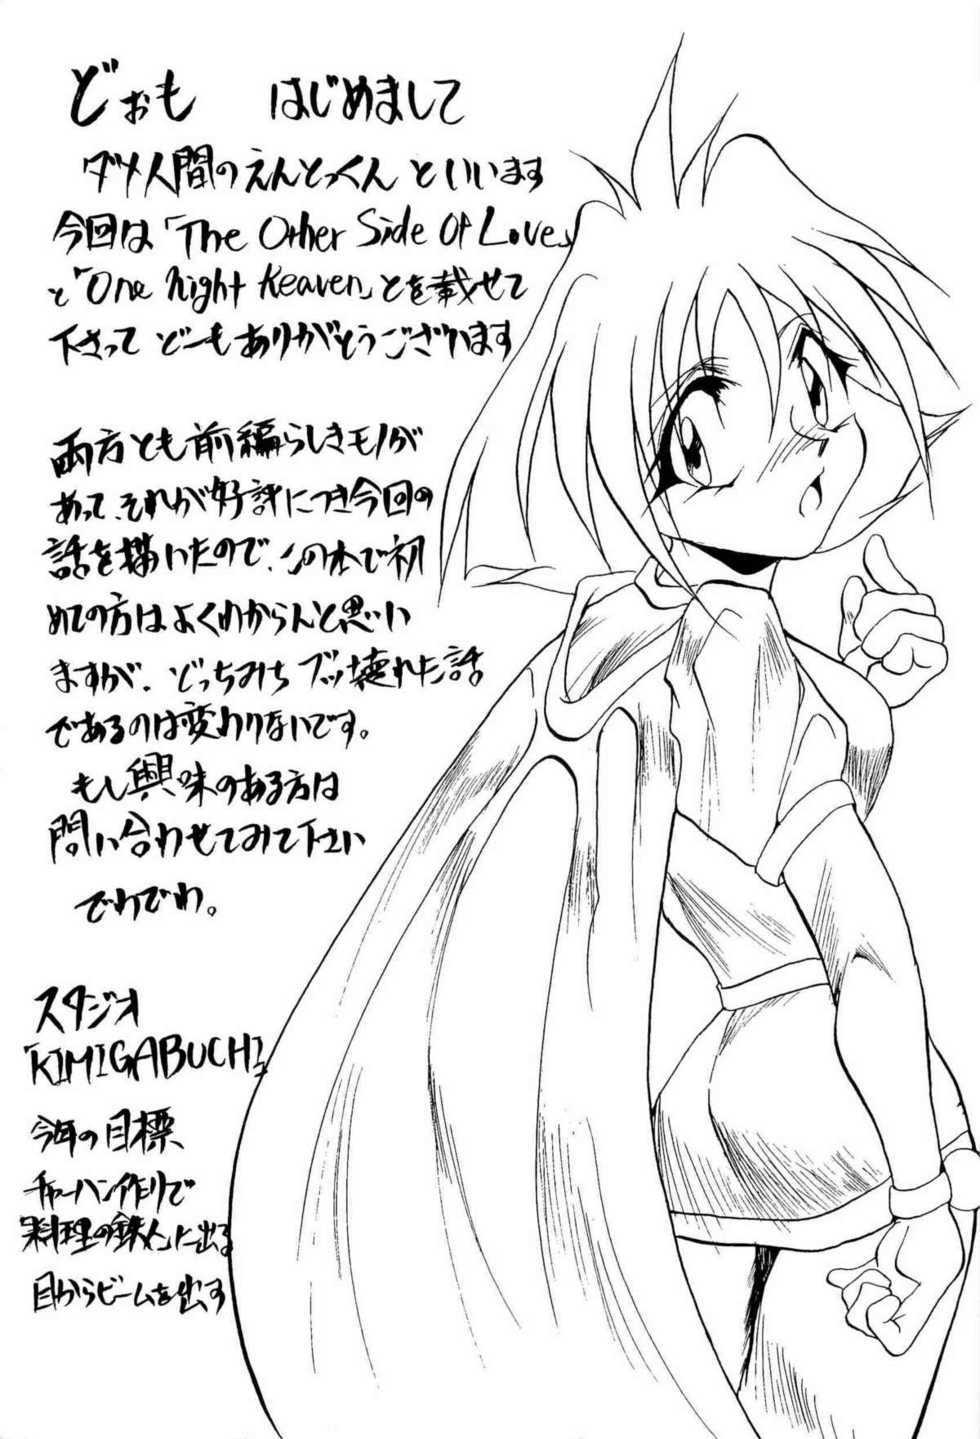 どぉも　はじめまして
ダメ人間のえんとっくん といいます
今回は「The Other Side Of Love」
と「One Night Heaven」とを載せて
下さって どーもありがとうございます
両方とも前編らしきモノが
あって、それが好評につき今回の
話を描いたので、この本で初
めての方はよくわからんと思い
ますが、どっちみち ブッ壊れた話
であるのは変わりないです。
もし興味のある方は
問い合わせてみて下さい
でわでわ。
スタジオ
「KIMIGABUCHI」
今年の目標
チャーハン作りで
「料理の鉄人」に出る
目からビームを出す